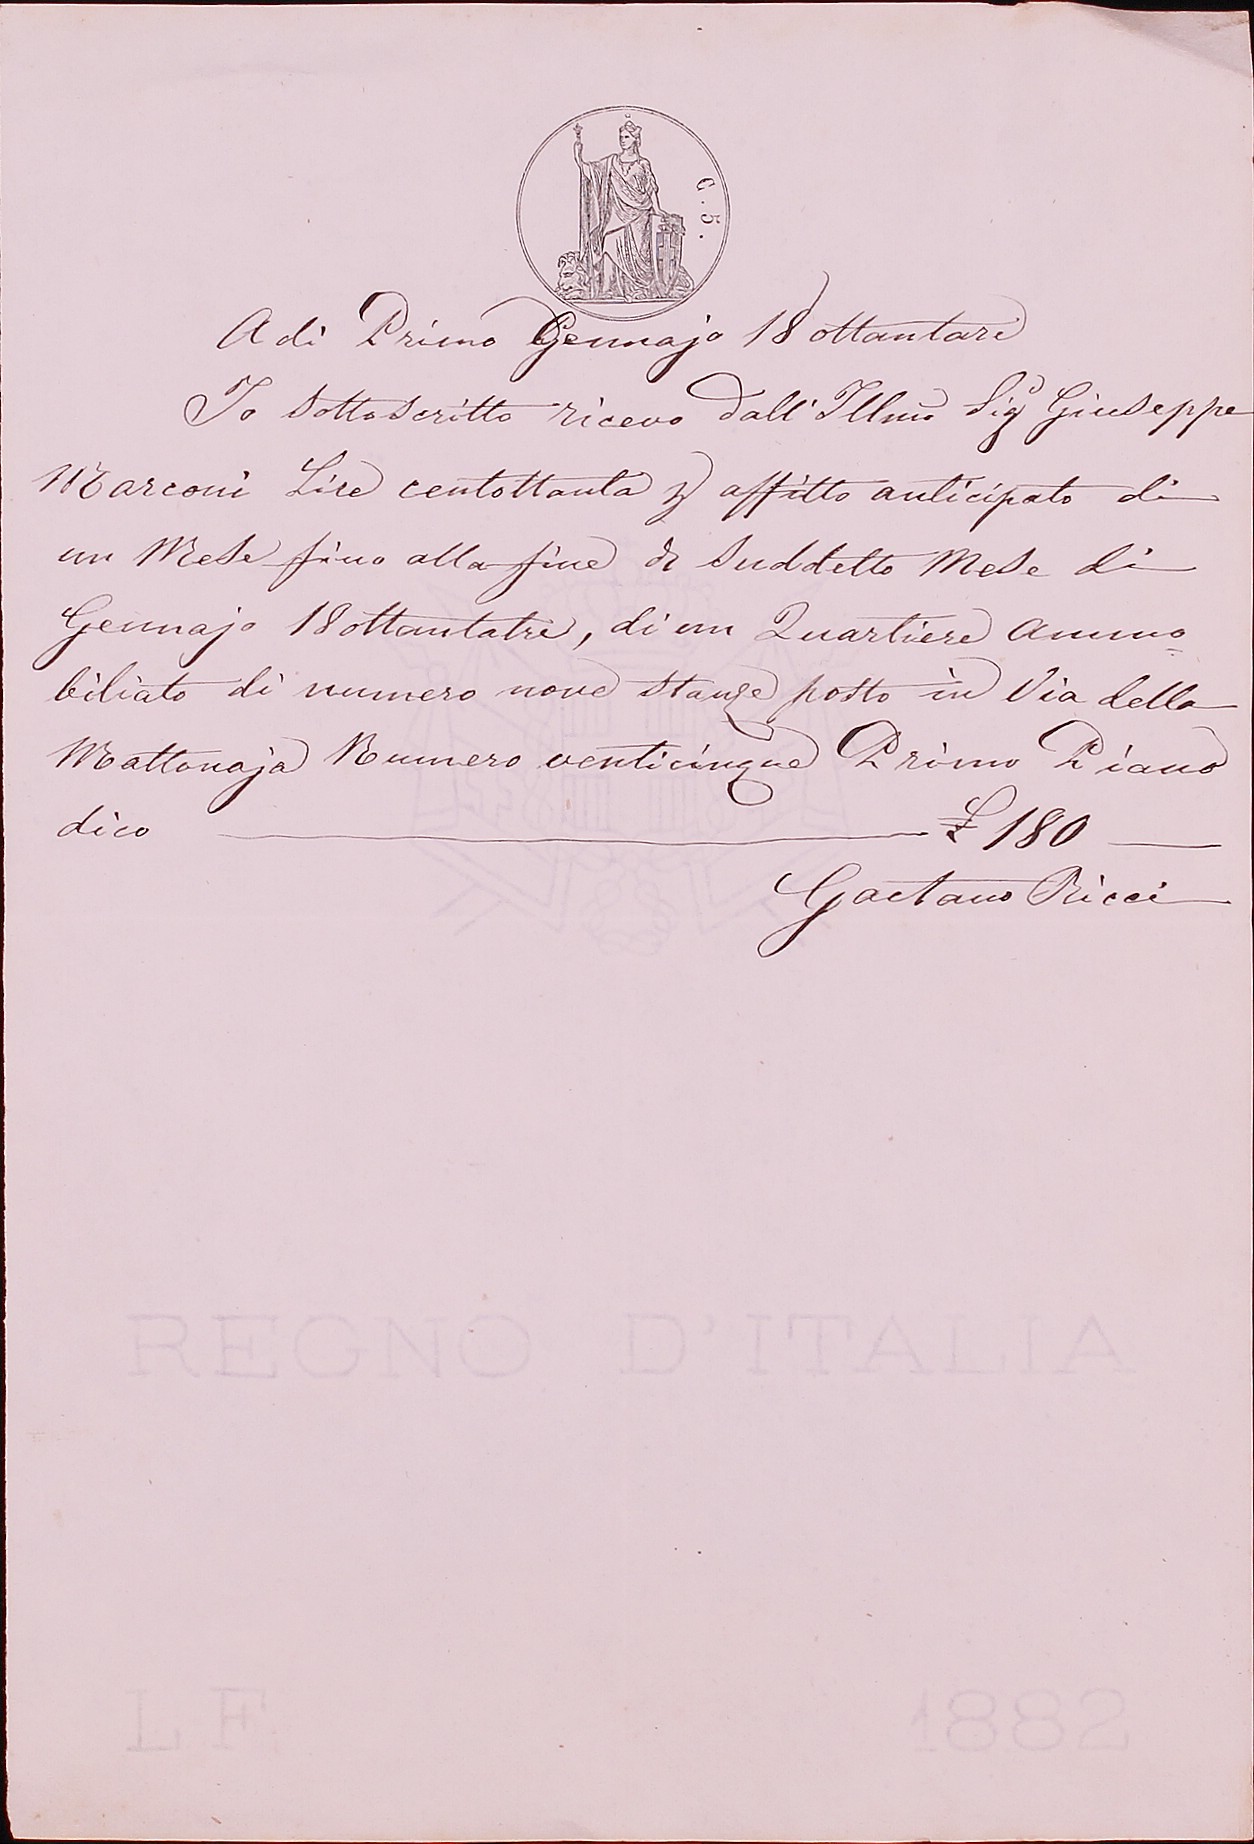 C. 5.
A di Primo Gennajo 18 ottantare
Io Sottoscritto ricevo dall' Illmo Sigr Giuseppe
Marconi Lire centottanta p affitto anticipato di
un Mese fino alla fine di Suddetto Mese di
Gennajo 18 ottantatre, di un Quartiere ammo
biliato di numero nove stanze posto in Via della
Mattonaja Numero venticinque Primo Piano
dico £ 180
Gaetano Ricci
REGNO D'ITALIA
L F 1882